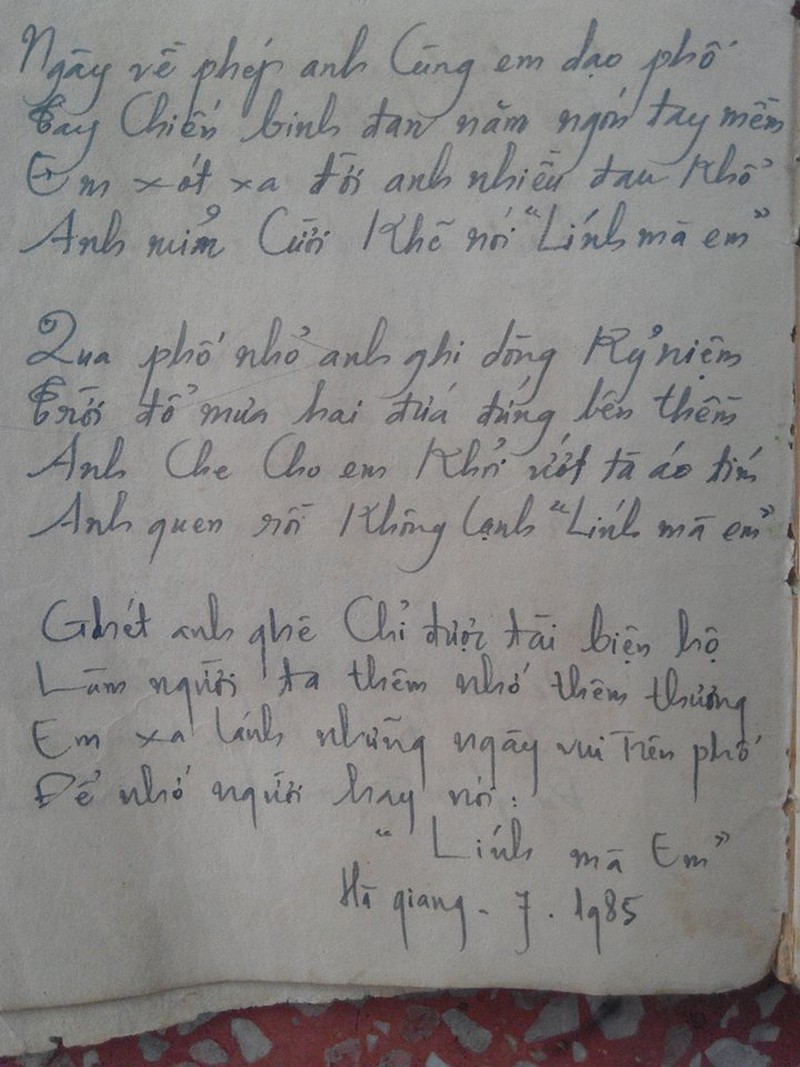 Ngày về phép anh Cùng em dạo phố
Tay Chiến binh đan năm ngón tay mềm
Em xót xa đời anh nhiều đau Khổ
Anh mỉm Cười Khẽ nói "Lính mà em"
Qua phố nhỏ anh ghi dòng Kỷ niệm
Trời đổ mưa hai đứa đứng bên thềm
Anh Che Cho em Khỏi ướt tà áo tím
Anh quen rồi Không lạnh "Lính mà em"
Ghét anh ghê Chỉ được tài biện hộ
Làm người ta thêm nhớ thêm thương
Em xa lánh những ngày vui trên phố
Để nhớ người hay nói:
"Lính mà Em"
Hà giang - 7. 1985